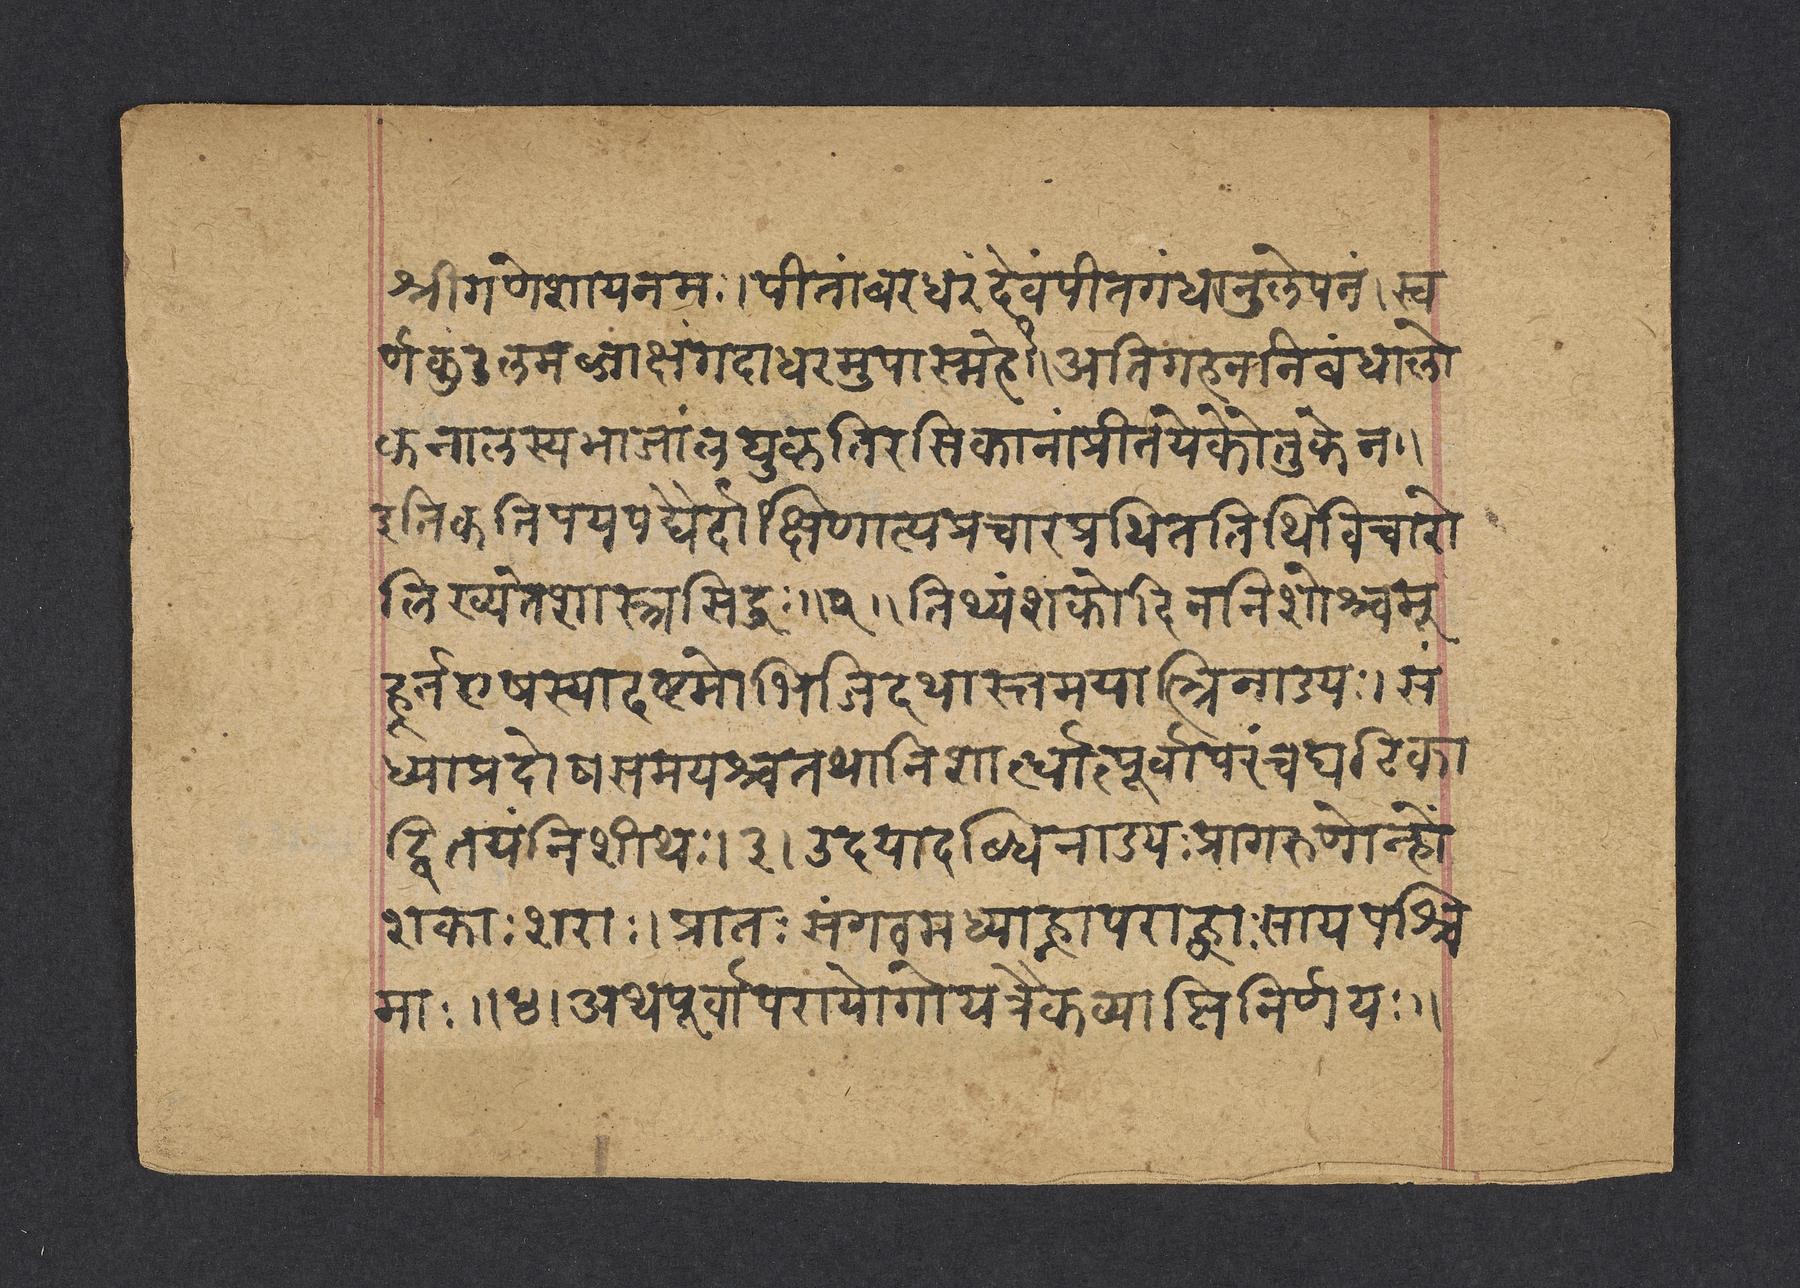 श्रीगणेशायनमः।पीतांबरधरंदेवंपीतगंधानुलेपनं।स्व
र्णकुंडलमब्जाक्षंगदाधरमुपास्महे।१।अतिगहननिबंधालो
कनालस्यभाजांलघुकृतिरसिकानांप्रीतयेकौतुकेन॥
इतिकतिपयपद्यैर्दाक्षिणात्यप्रचारप्रथिततिथिविचारो
लिख्यतेशास्त्रसिद्धः॥२॥तिथ्यंशकोदिननिशोश्चमु
हूर्तएषस्यादष्टमोभिजिदथास्तमयात्त्रिनाड्यः।सं
ध्याप्रदोषसमयश्चतथानिशार्त्धात्पूर्वापरंचघटिका
द्वितयंनिशीथः।३।उदयादब्धिनाड्यःप्रागरुणोन्हों
शकाःशराः।प्रातःसंगवमध्याह्नापराह्णाःसायपश्चि
माः॥४।अथपूर्वापरायोगोयत्रैकव्याप्तिनिर्णयः॥